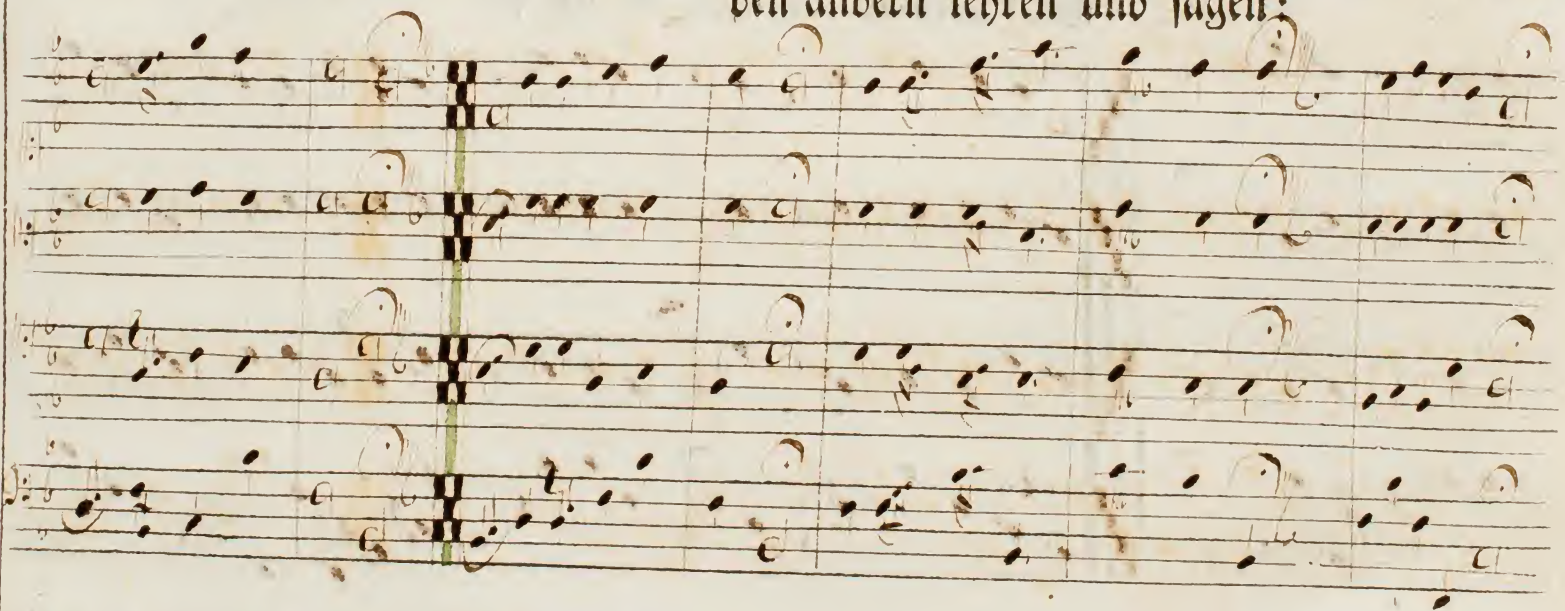 den andern lehren und sagen: